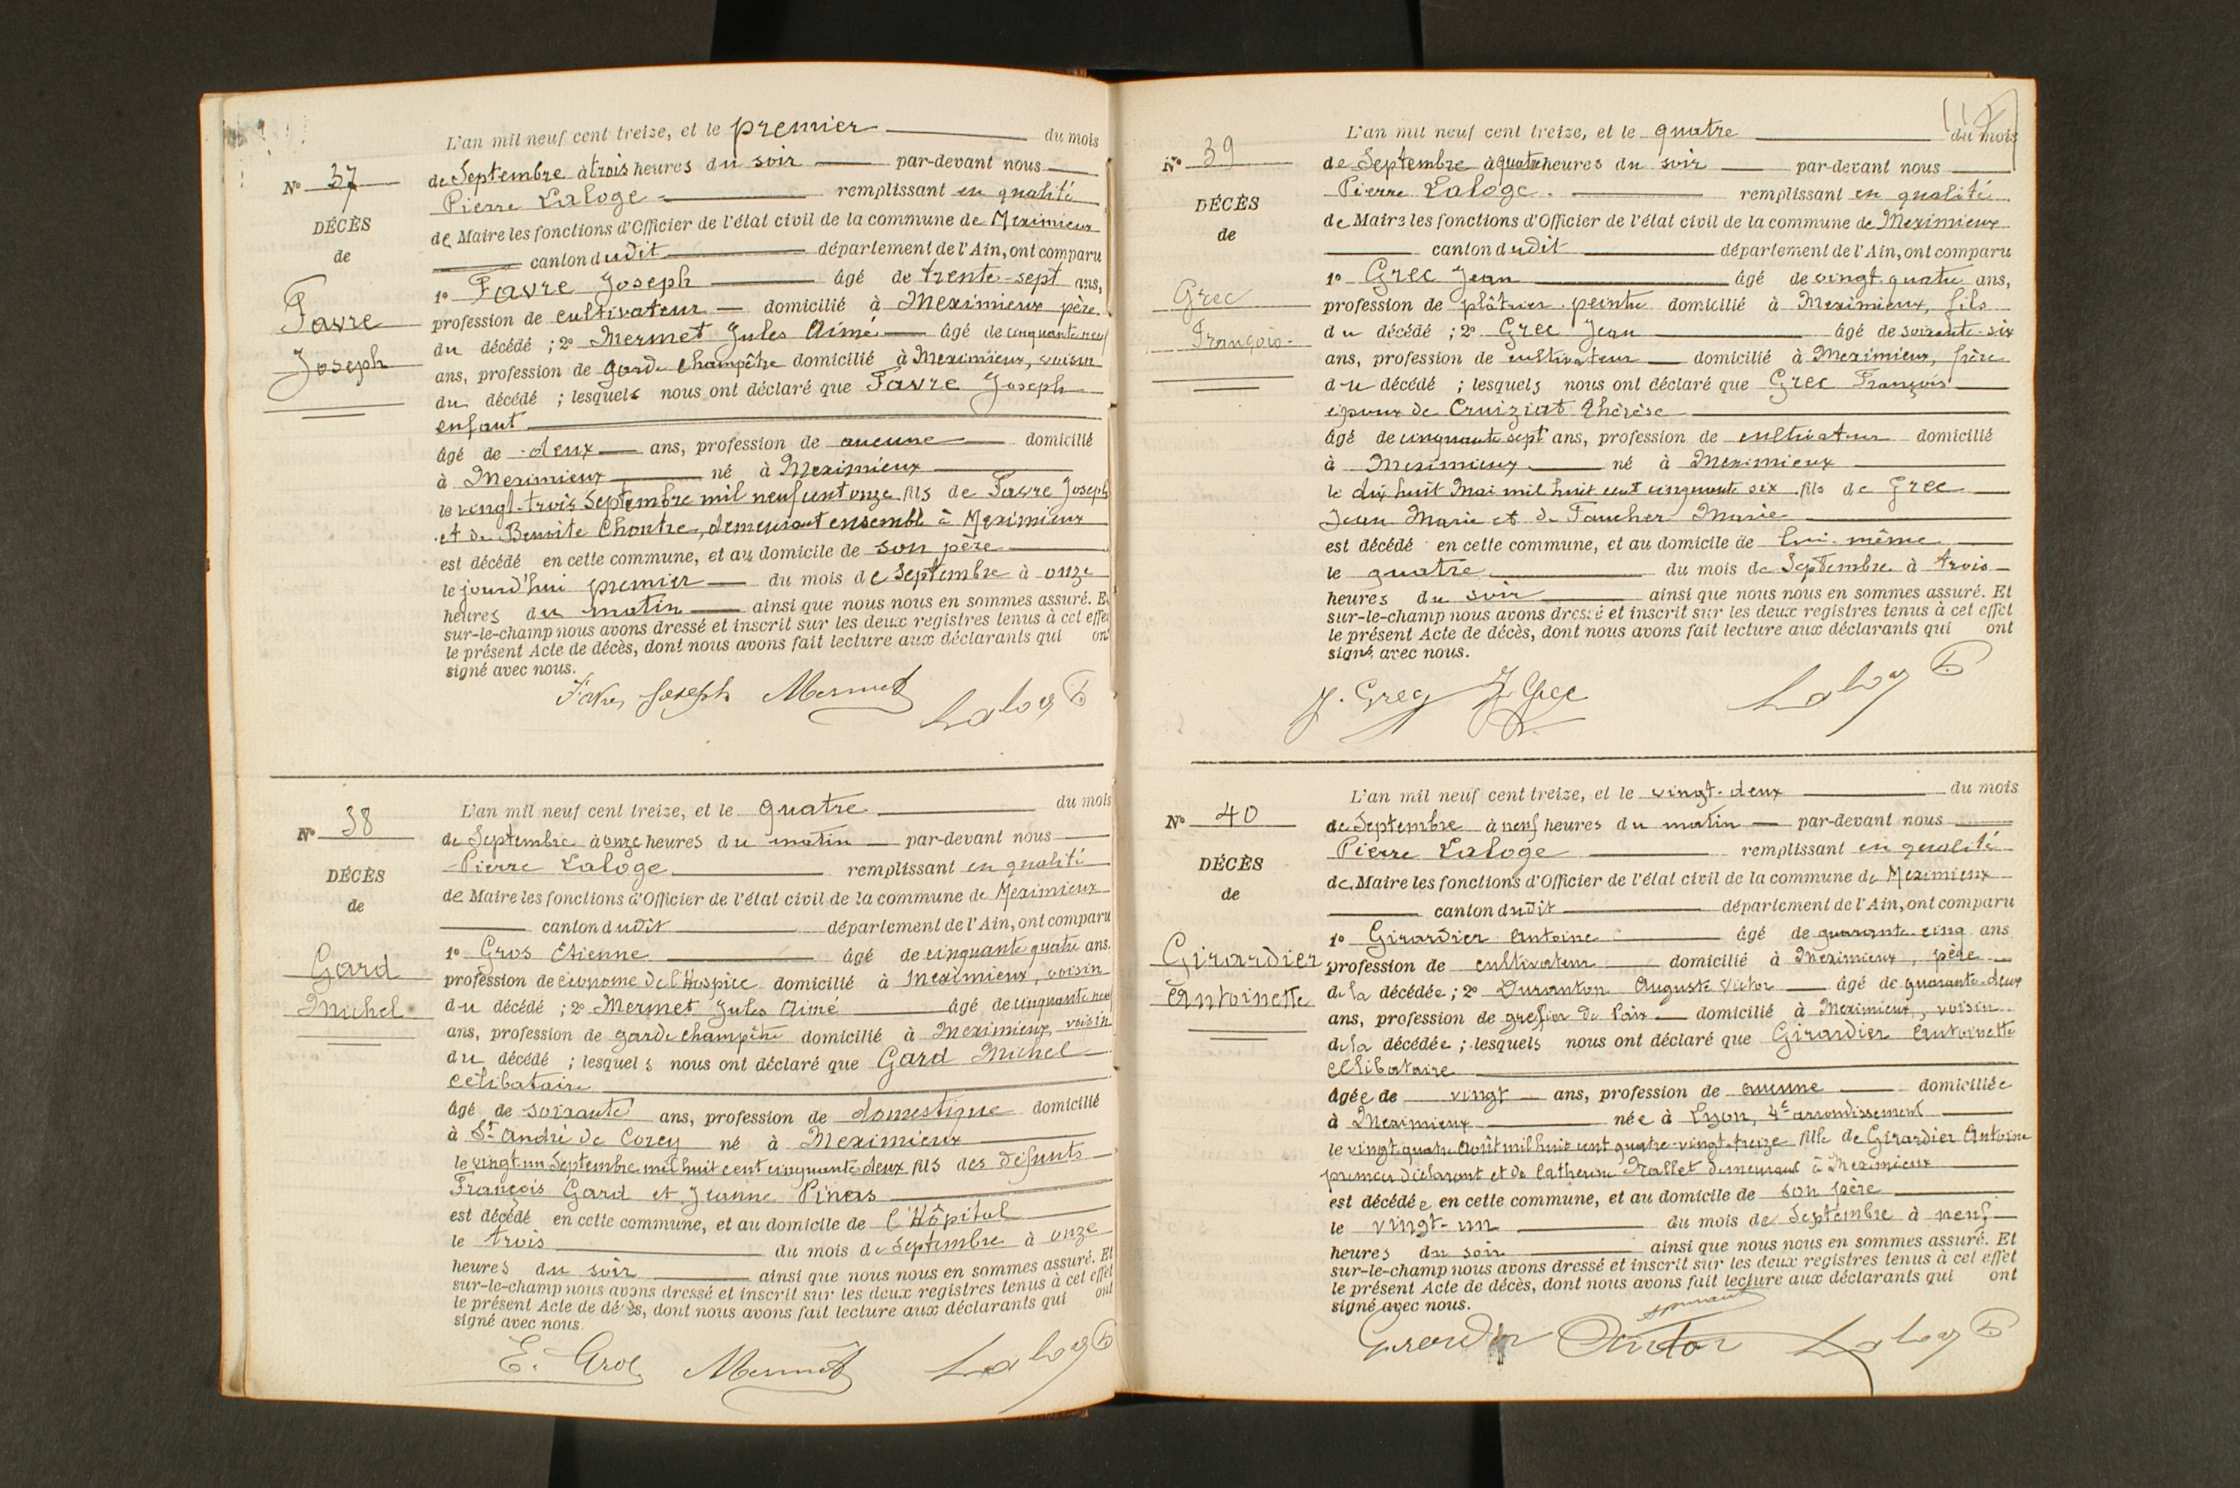 L'an mil neuf cent treize, et le premier du mois
N° 37
de Septembre à trois heures du soir par-devant nous
Pierre Laloge remplissant en qualité
DÉCÈS
de Maire les fonctions d'Officier de l'état civil de la commune de Meximieux
de
canton dudit département de l'Ain, ont comparu
1° Favre Joseph âgé de trente-sept ans,
Favre
profession de cultivateur domicilié à Meximieux père
du décédé ; 2° Mermet Jules Aimé âgé de cinquante neuf
Joseph
ans, profession de garde champêtre domicilié à Meximieux, voisin
du décédé ; lesquels nous ont déclaré que Favre Joseph
enfant
âgé de deux ans, profession de aucune domicilié
à Meximieux né à Meximieux
le vingt-trois Septembre mil neuf cent onze fils de Favre Joseph
et de Benoite Chontre, demeurant ensemble à Meximieux
est décédé en cette commune, et au domicile de son père
le jourd'hui premier du mois de Septembre à onze
heures du matin ainsi que nous nous en sommes assuré. Et
sur-le-champ nous avons dressé et inscrit sur les deux registres tenus à cet effet
le présent Acte de décès, dont nous avons fait lecture aux déclarants qui ont
signé avec nous.
Favre Joseph Mermet Laloge
L'an mil neuf cent treize, et le quatre du mois
N° 38
de Septembre à onze heures du matin par-devant nous
Pierre Laloge remplissant en qualité
DÉCÈS
de Maire les fonctions d'Officier de l'état civil de la commune de Meximieux
de
canton dudit département de l'Ain, ont comparu
1° Gros Etienne âgé de cinquante quatre ans.
Gard
profession de économe de l'Hospice domicilié à Meximieux, voisin
Michel
du décédé ; 2° Mermet Jules Aimé âgé de cinquante neuf
ans, profession de garde champêtre domicilié à Meximieux, voisin
du décédé ; lesquels nous ont déclaré que Gard Michel
célibataire
âgé de soixante ans, profession de domestique domicilié
à St André de Corcy né à Meximieux
le vingt un Septembre mil huit cent cinquante deux fils des défunts
François Gard et Jeanne Pinas
est décédé en cette commune, et au domicile de l'Hôpital
le trois du mois de Septembre à onze
heures du soir ainsi que nous nous en sommes assuré. Et
sur-le-champ nous avons dressé et inscrit sur les deux registres tenus à cet effet
le présent Acte de décès, dont nous avons fait lecture aux déclarants qui ont
signé avec nous.
E. Gros Mermet Laloge
L'an mil neuf cent treize, et le quatre du mois
N° 39
de Septembre à quatre heures du soir par-devant nous
Pierre Laloge. remplissant en qualité
DÉCÈS
de Maire les fonctions d'Officier de l'état civil de la commune de Meximieux
de
canton dudit département de l'Ain, ont comparu
1° Grec Jean âgé de vingt-quatre ans,
Grec
profession de plâtrier-peintre domicilié à Meximieux, fils
du décédé ; 2° Grec Jean âgé de soixante-six
François
ans, profession de cultivateur domicilié à Meximieux, frère
du décédé ; lesquels nous ont déclaré que Grec François
époux de Cruiziat Thérèse
âgé de cinquante sept ans, profession de cultivateur domicilié
à Meximieux né à Meximieux
le dix huit Mai mil huit cent cinquante six fils de Grec
Jean Marie et de Faucher Marie
est décédé en cette commune, et au domicile de lui-même
le quatre du mois de Septembre à trois
heures du soir ainsi que nous nous en sommes assuré. Et
sur-le-champ nous avons dressé et inscrit sur les deux registres tenus à cet effet
le présent Acte de décès, dont nous avons fait lecture aux déclarants qui ont
signé avec nous.
J. Grec J Grec Laloge
L'an mil neuf cent treize, et le vingt-deux du mois
N° 40
de Septembre à neuf heures du matin par-devant nous
Pierre Laloge remplissant en qualité
DÉCÈS
de Maire les fonctions d'Officier de l'état civil de la commune de Meximieux
de
canton dudit département de l'Ain, ont comparu
1° Girardier Antoine âgé de quarante-cinq ans
Girardier
profession de cultivateur domicilié à Meximieux, père
Antoinette
de la décédée ; 2° Duranton Auguste Victor âgé de quarante-deux
ans, profession de greffier de Paix domicilié à Meximieux, voisin
de la décédée ; lesquels nous ont déclaré que Girardier Antoinette
célibataire
âgée de vingt ans, profession de aucune domiciliée
à Meximieux née à Lyon, 4e arrondissement
le vingt quatre Août mil huit cent quatre-vingt-treize fille de Girardier Antoine
premier déclarant et de Catherine Mallet demeurant à Meximieux
est décédée en cette commune, et au domicile de son père
le vingt-un du mois de Septembre à neuf
heures du soir ainsi que nous nous en sommes assuré. Et
sur-le-champ nous avons dressé et inscrit sur les deux registres tenus à cet effet
le présent Acte de décès, dont nous avons fait lecture aux déclarants qui ont
signé avec nous.
Girardier Laloge